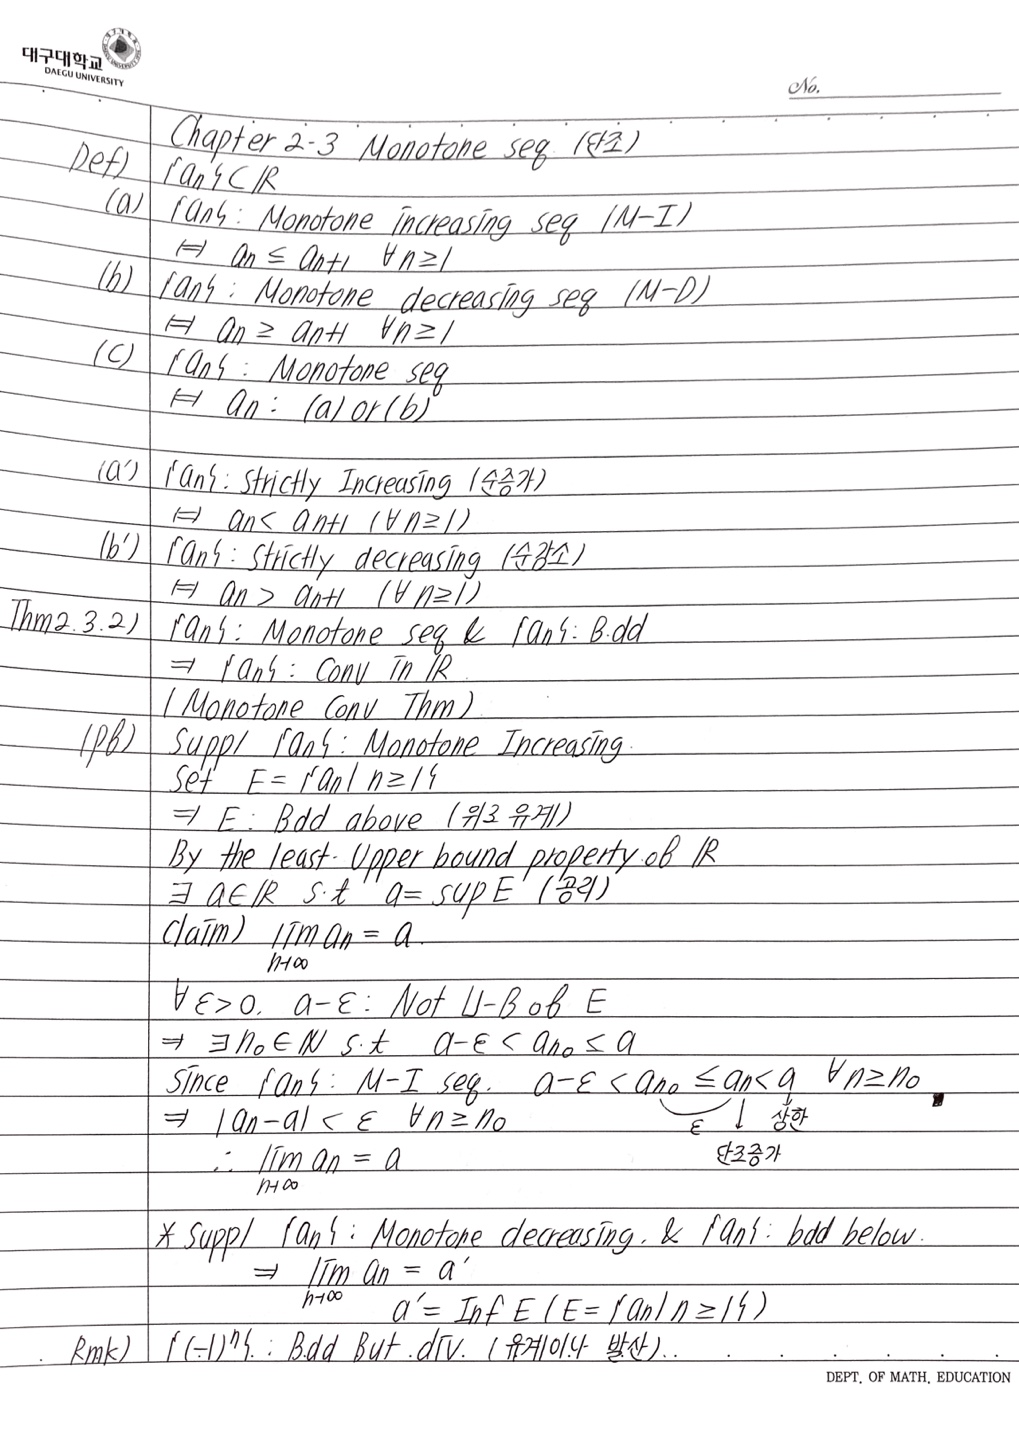 대구대학교
DAEGU UNIVERSITY
No.
Chapter 2-3 Monotone seq (단조)
Def) {an} ⊂ ℝ
(a) {an}: Monotone increasing seq (M-I)
⇔ an ≤ an+1 ∀n≥1
(b) {an}: Monotone decreasing seq (M-D)
⇔ an ≥ an+1 ∀n≥1
(c) {an}: Monotone seq
⇔ an: (a) or (b)
(a′) {an}: Strictly Increasing (순증가)
⇔ an < an+1 (∀n≥1)
(b′) {an}: Strictly decreasing (순감소)
⇔ an > an+1 (∀n≥1)
Thm2.3.2) {an}: Monotone seq & {an}: B.dd
⇒ {an}: Conv in ℝ
(Monotone Conv Thm)
(pf) Suppl {an}: Monotone Increasing.
Set E = {an | n≥1}
⇒ E: Bdd above (위로 유계)
By the least-Upper bound property of ℝ
∃ a∈ℝ s.t a = sup E (공리)
Claim) lim an = a.
n→∞
∀ε>0. a-ε: Not U-B of E
⇒ ∃n₀∈ℕ s.t a-ε < an₀ ≤ a
Since {an}: M-I seq. a-ε < an₀ ≤ an < a ∀n≥n₀
⇒ |an-a| < ε ∀n≥n₀ ε ↓ 상한
∴ lim an = a 단조증가
n→∞
* Suppl {an}: Monotone decreasing. & {an}: bdd below.
⇒ lim an = a′
n→∞
a′ = Inf E (E = {an | n≥1})
Rmk) {(-1)ⁿ}.: B.dd But .div. (유계이나 발산)..
DEPT. OF MATH. EDUCATION